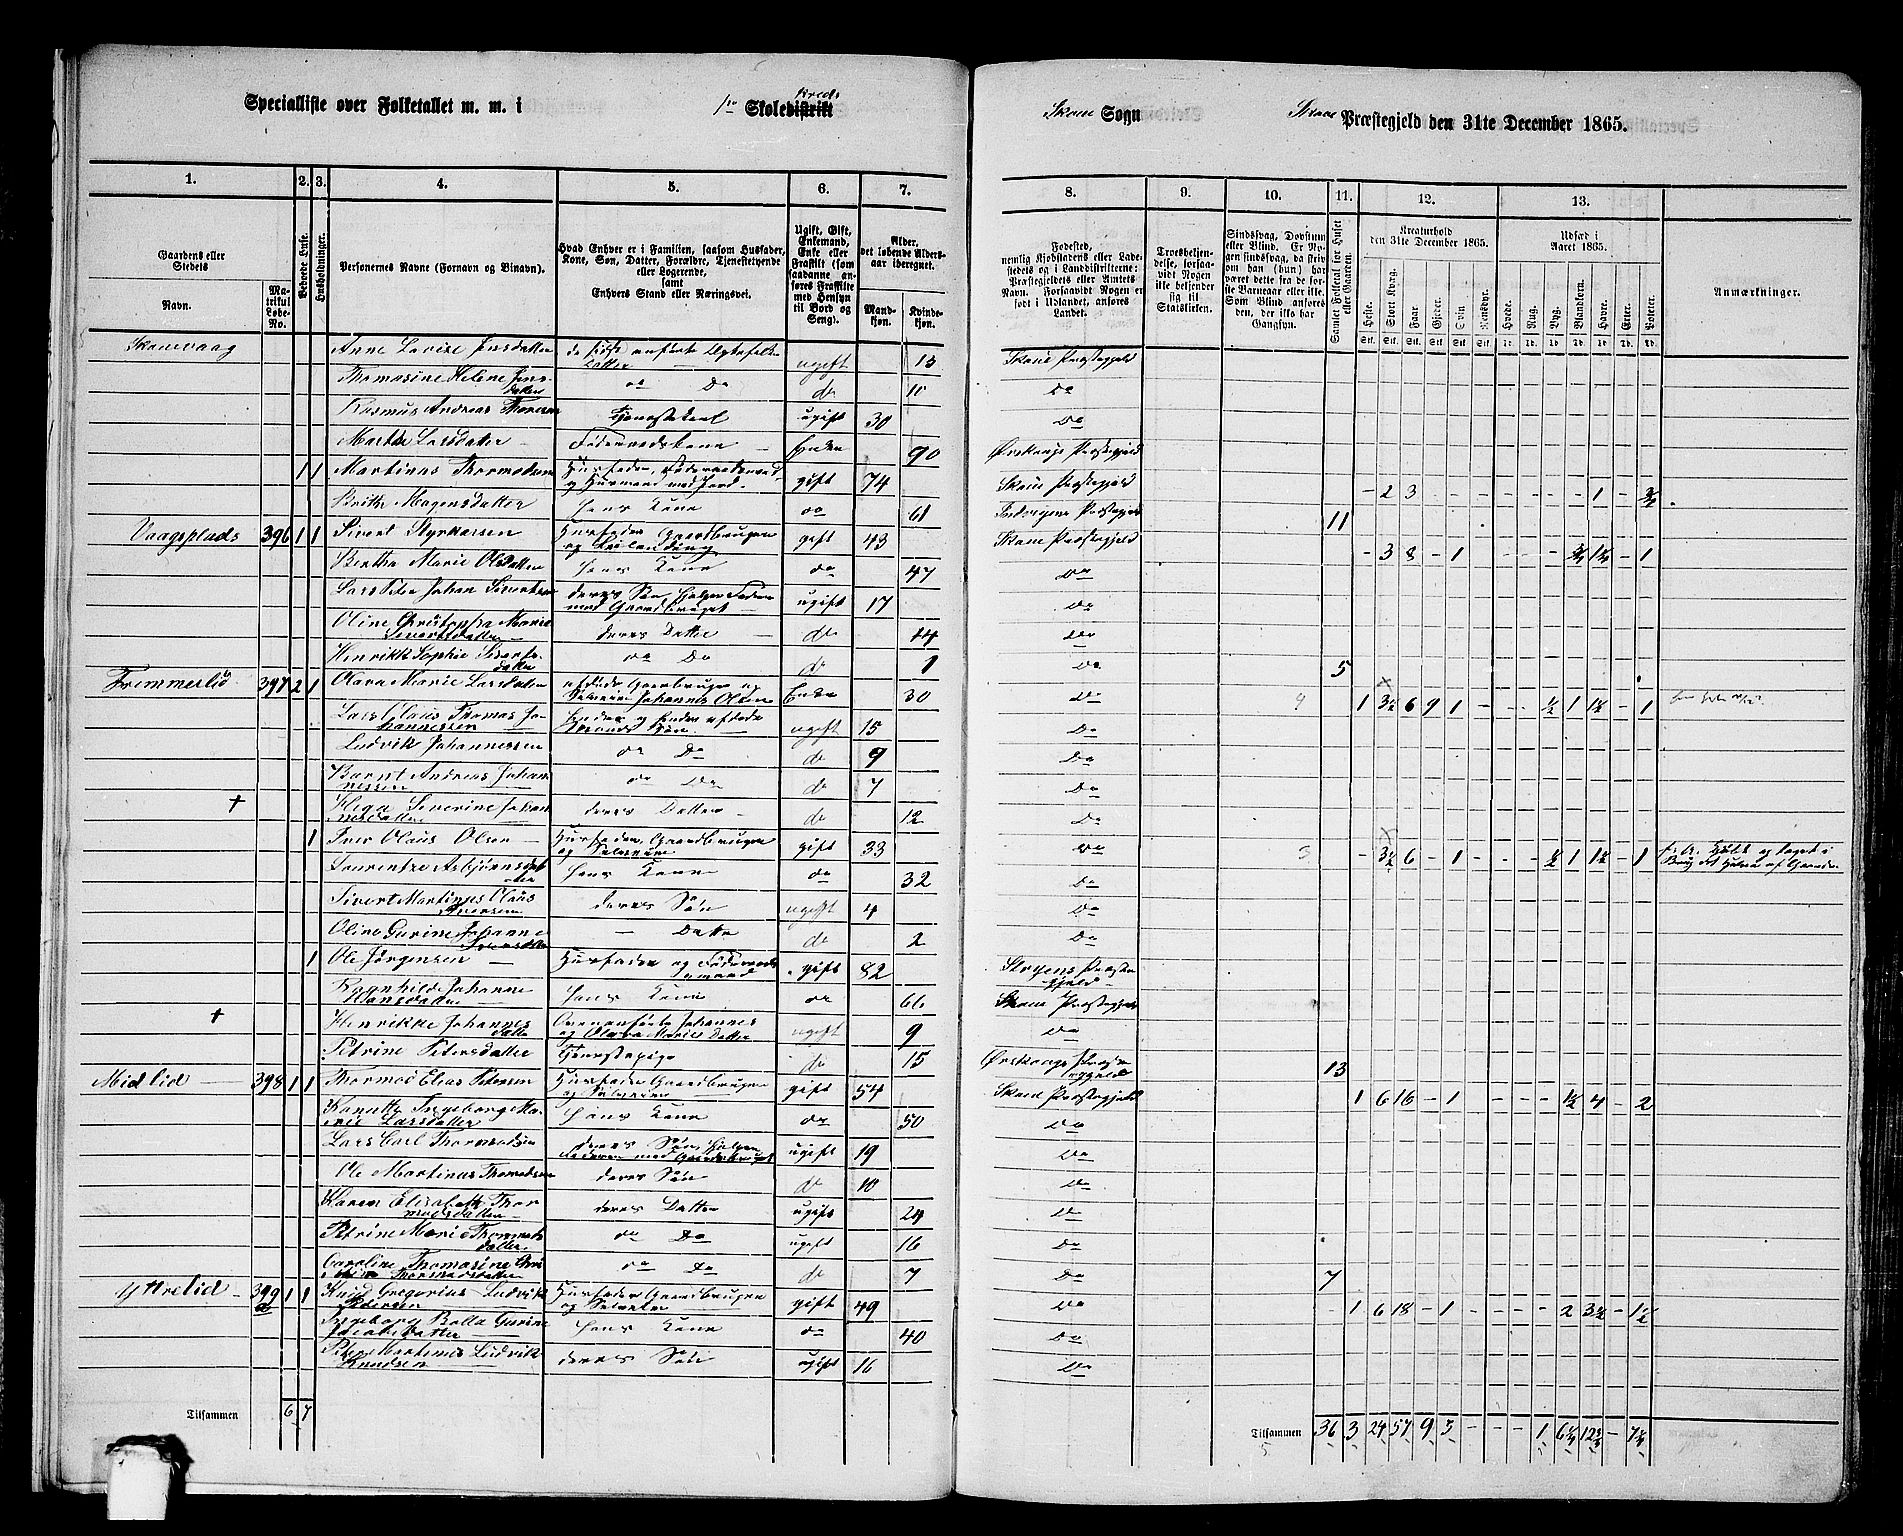 Specialliste over Folketallet m. m. i 1ste Skoledistrikt Kreds
Skaue Sogn Skaue Præstegjeld den 31te December 1865.
1. 2. 3. 4. 5. 6. 7. 8. 9. 10. 11. 12. 13.
Gaardens eller Stedets
Navn.
Matrikul Løbe-No.
Beboede Huse.
Husholdninger.
Personernes Navne (Fornavn og Binavn).
Hvad Enhver er i Familien, saasom Husfader, Kone, Søn, Datter, Forældre, Tjenestetyende eller Logerende,
samt
Enhvers Stand eller Næringsvei.
Ugift, Gift, Enkemand, Enke eller Fraskilt (som saadanne anføres Fraskilte med Hensyn til Bord og Seng).
Alder, det løbende Aldersaar iberegnet.
Mandkjøn.
Kvindekjøn.
Fødested,
nemlig Kjøbstadens eller Ladestedets og i Landdistrikterne: Præstegjeldets eller Amtets Navn. Forsaavidt Nogen er født i Udlandet, anføres Landet.
Troesbekjendelse, forsaavidt Nogen ikke bekjender sig til Statskirken.
Sindssvag, Døvstum eller Blind.
Samlet Folketal for Huset eller Gaarden.
Kreaturhold den 31te December 1865.
Heste. Stort Kvæg. Faar. Gjeter. Svin. Rensdyr.
Udsæd i Aaret 1865.
Hvede. Rug. Byg. Blandkorn. Havre. Erter. Poteter.
Anmærkninger.
Skauevaag Anne Lovise Jensdatter ugift 13 Skaue Præstegjeld
Thomasine Helene Jensdatter do Do do 11 Do
Rasmus Andreas Thoresen Tjenestekarl ugift 30 Do
Marthe Larsdatter Føderaadskone Enke 90 Ørskougs Præstegjeld
1 1 Martinus Thormodsen Husfader, Føderaadsmand og Husmand med Jord gift 74 Skaue Præstegjeld - 2 3 - - - - - - - 1 -
Brithe Mogensdatter Hans Kone do 61 11
Vaagsplads 396 1 1 Sivert Styrkersen Husfader Gaardbruger og Leilending gift 43 Skaue Præstegjeld - 3 8 - 1 - - - - 3/4 1 1/4 - 1
Bertha Marie Olsdatter Hans Kone do 47 Do
Lars Peter Johan Sivertsen deres Søn hjelper Faderen med Gaardbruget ugift 17 Do
Oline Christopha Marie Sivertsdatter deres Datter do 14 Do
Henrikke Sophie Sivertsdatter do Do do 1 Do 5
Fremmerlid 397 2 1 Olava Marie Larsdatter afdøde Gaardbruger og Selveier Johannes Olsens Enke 30 Do 1 3 1/2 6 9 1 - - - 1/2 1 1 1/2 - 1
Lars Claus Thomas Johannessen ugift 15 Do
Ludvik Johannessen do Do do 9 Do
Bernt Andreas Johannessen do Do do 7 Do
+ Severine Johannesdatter deres Datter do 12 Do
1 Iver Olaus Olsen Husfader, Gaardbruger og Selveier gift 33 Do - 3 1/2 6 - 1 - - - 1/2 1 1 1/2 - 1
Laurentze Asbjørnsdatter Hans Kone do 32 Do
Sivert Martinus Olaus Iversen deres Søn ugift 4 Do
Oline Gurine Johanne Iversdatter - Datter do 2 Do
1 Ole Jørgensen Husfader og Føderaadsmand gift 82 Præstegjeld
Ragnhilde Johanne Hansdatter Hans Kone do 66 Skaue Præstegjeld
+ Henrikke Johannesdatter Ovenanførte Johannes og Olava Maries Datter ugift 9 Do
Petrine Petersdatter Tjenestepige do 15 Ørskougs Præstegjeld 13
Midlid 398 1 1 Thormod Elias Petersen Husfader Gaardbruger og Selveier gift 54 Skaue Præstegjeld 1 6 16 - 1 - - - - 1 1/2 4 - 2
Kanutte Ingeborg Marie Larsdatter Hans Kone do 50 Do
Lars Carl Thormodsen deres Søn, hjelper Faderen med Gaardbruget ugift 19 Do
Ole Martinus Thormodsen deres Søn do 10 Do
Karen Elisabeth Thormodsdatter deres Datter ugift 24 Do
Petrine Marie Thormodsdatter do Do ugift 16 Do
Caroline Thomasine Thormodsdatter do Do do 7 Do 7
Yttrelid 399 a 1 1 Knud Gregorius Ludvik Pedersen Husfader Gaardbruger og Selveier gift 49 Do 1 6 18 - 1 - - - - 2 3 1/2 - 1 1/2
Ingeborg Bolla Gurine Jacobsdatter Hans Kone do 40 Do
Peter Martinus Ludvik Knudsen deres Søn ugift 16 Do
Tilsammen 6 7
Tilsammen 36 3 24 57 9 5 - - 1 6 1/4 12 3/4 - 7 1/4